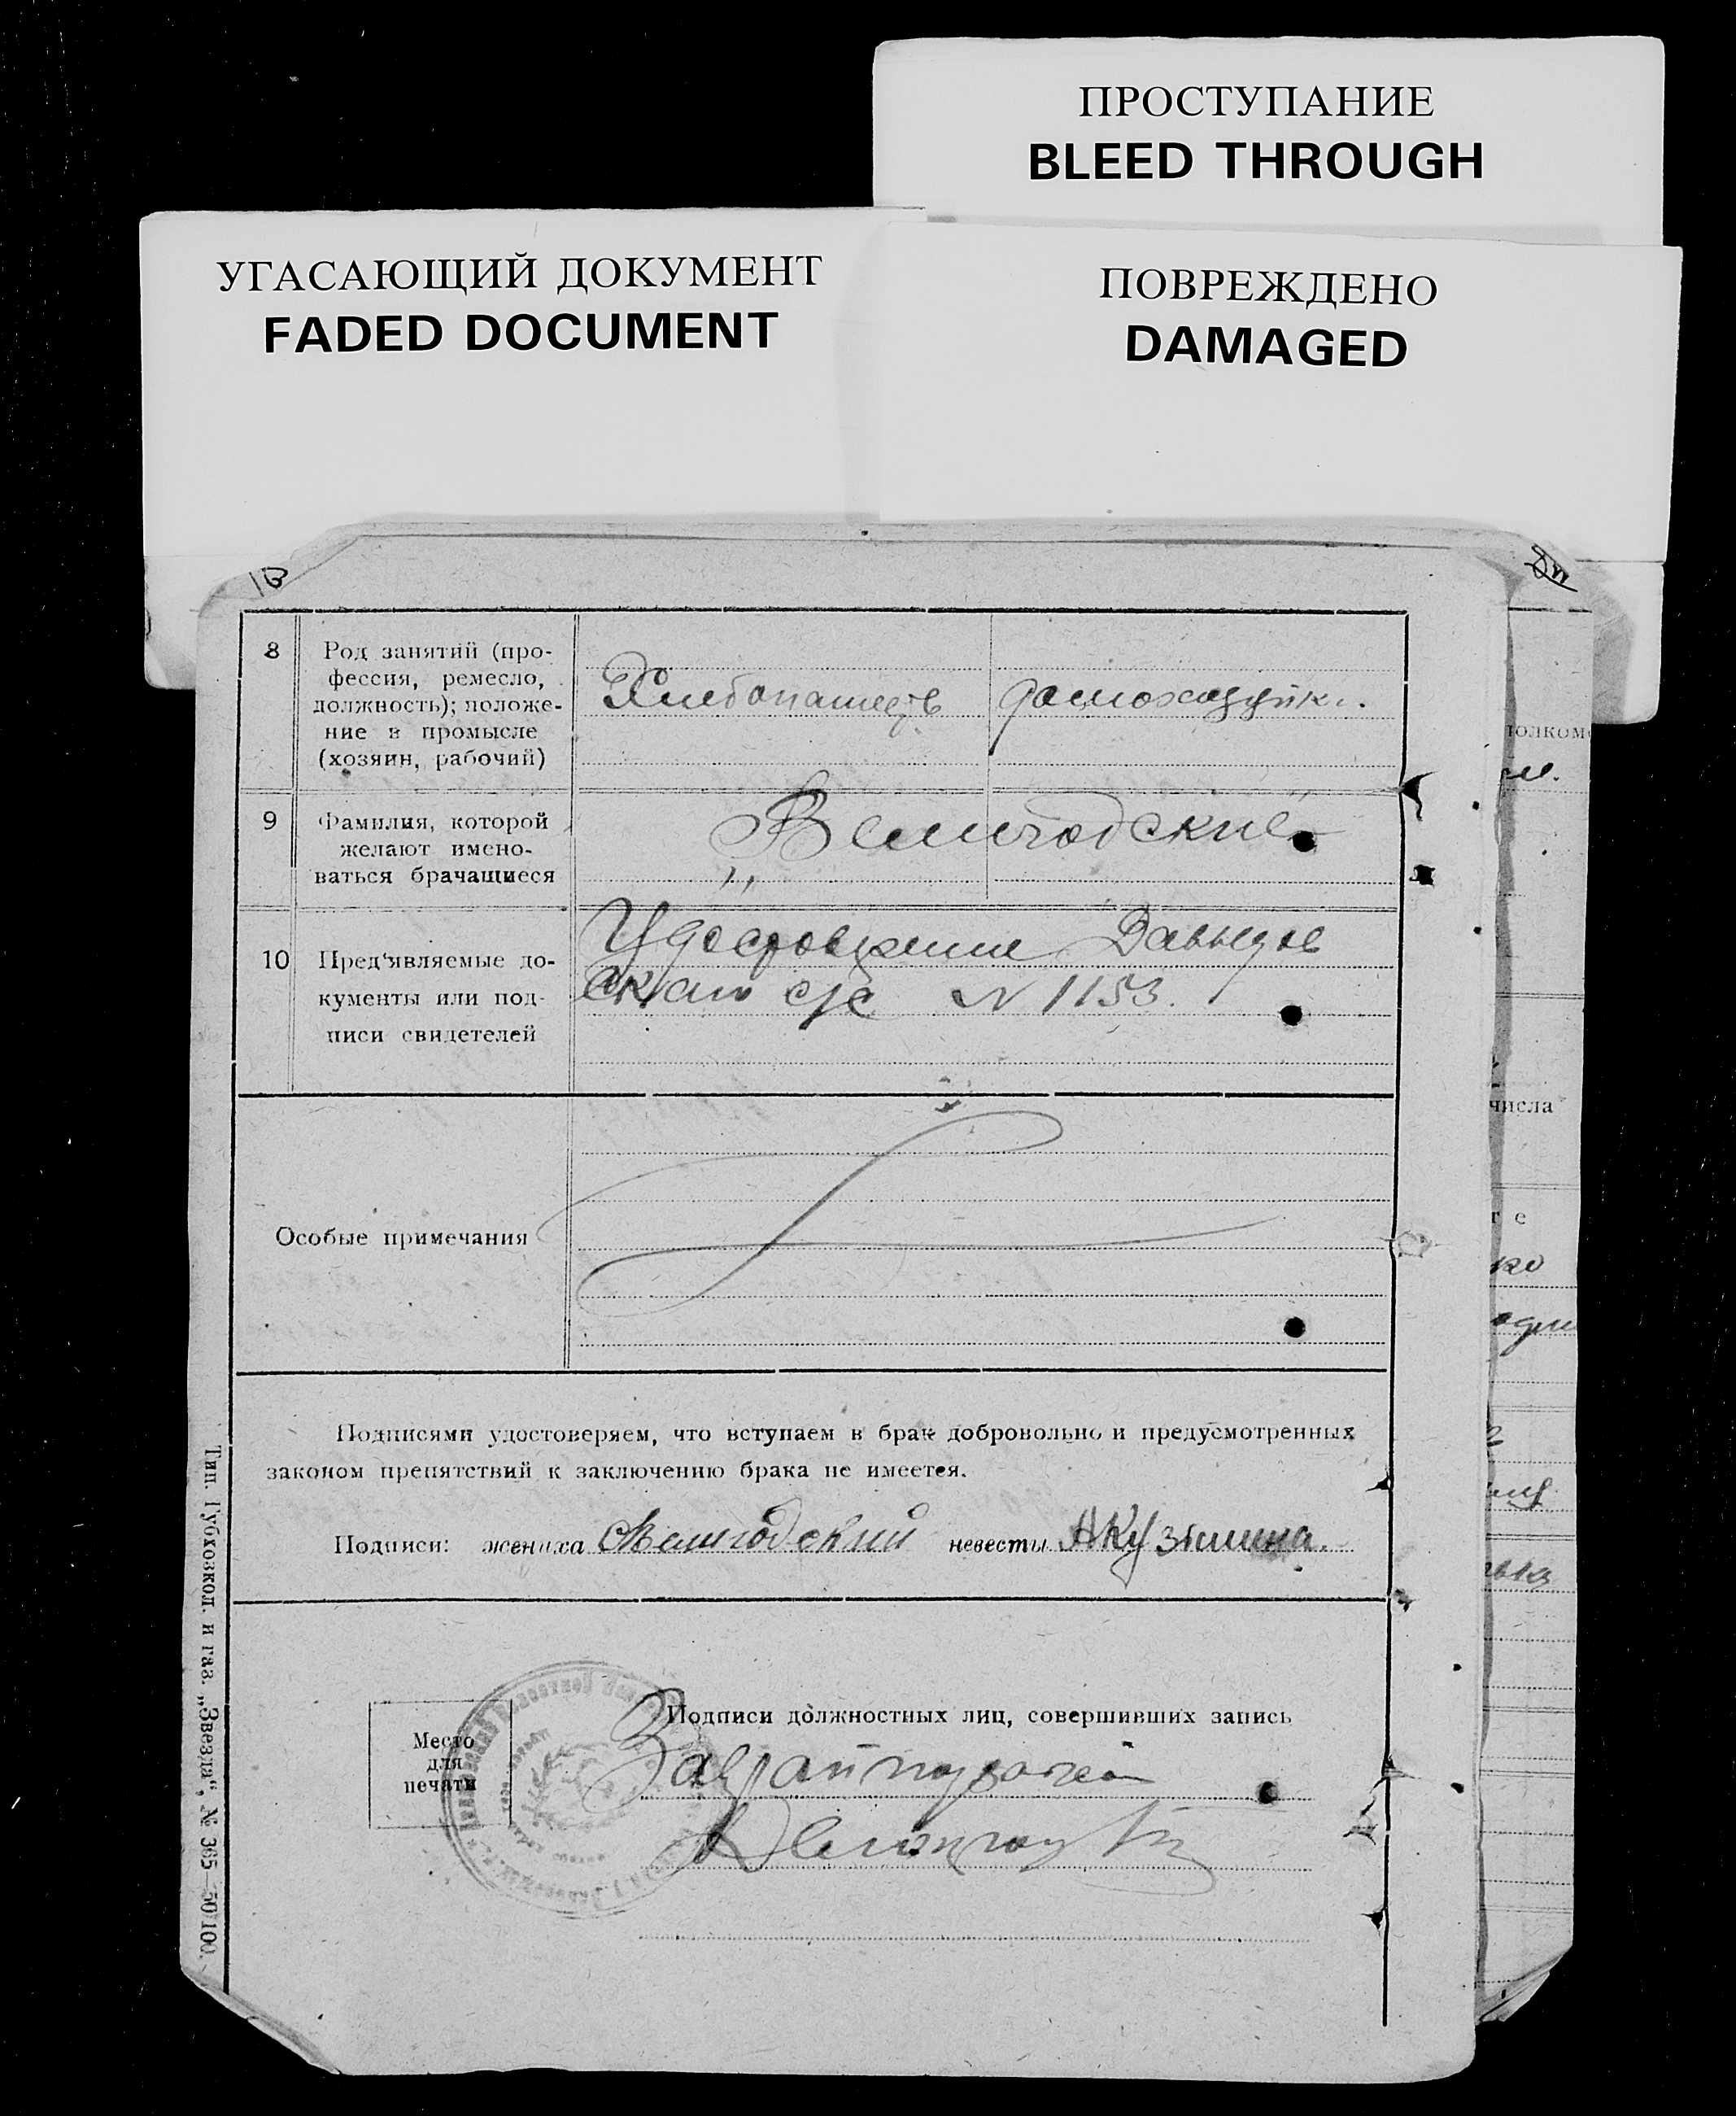 ПРОСТУПАНИЕ
BLEED THROUGH
УГАСАЮЩИЙ ДОКУМЕНТ
FADED DOCUMENT
ПОВРЕЖДЕНО
DAMAGED
8
Род занятий (про-
фессия, ремесло,
должность); положе-
ние в промысле
(хозяин, рабочий)
Хлебопашец
домохозяйк.
9
Фамилия, которой
желают имено-
ваться брачащиеся
Велигодские
10
Пред'являемые до-
кументы или под-
писи свидетелей
Удостоверение Давыдов
ского с/с № 1153.
Особые примечания
Подписями удостоверяем, что вступаем в брак добровольно и предусмотренных
законом препятствий к заключению брака не имеется.
Подписи: жениха Велигодский невесты АКузьмина.
Место
для
печати
Подписи должностных лиц, совершивших запись
Тип. Губкозкол. и газ. „Звезда“, № 365—50/100.
числа